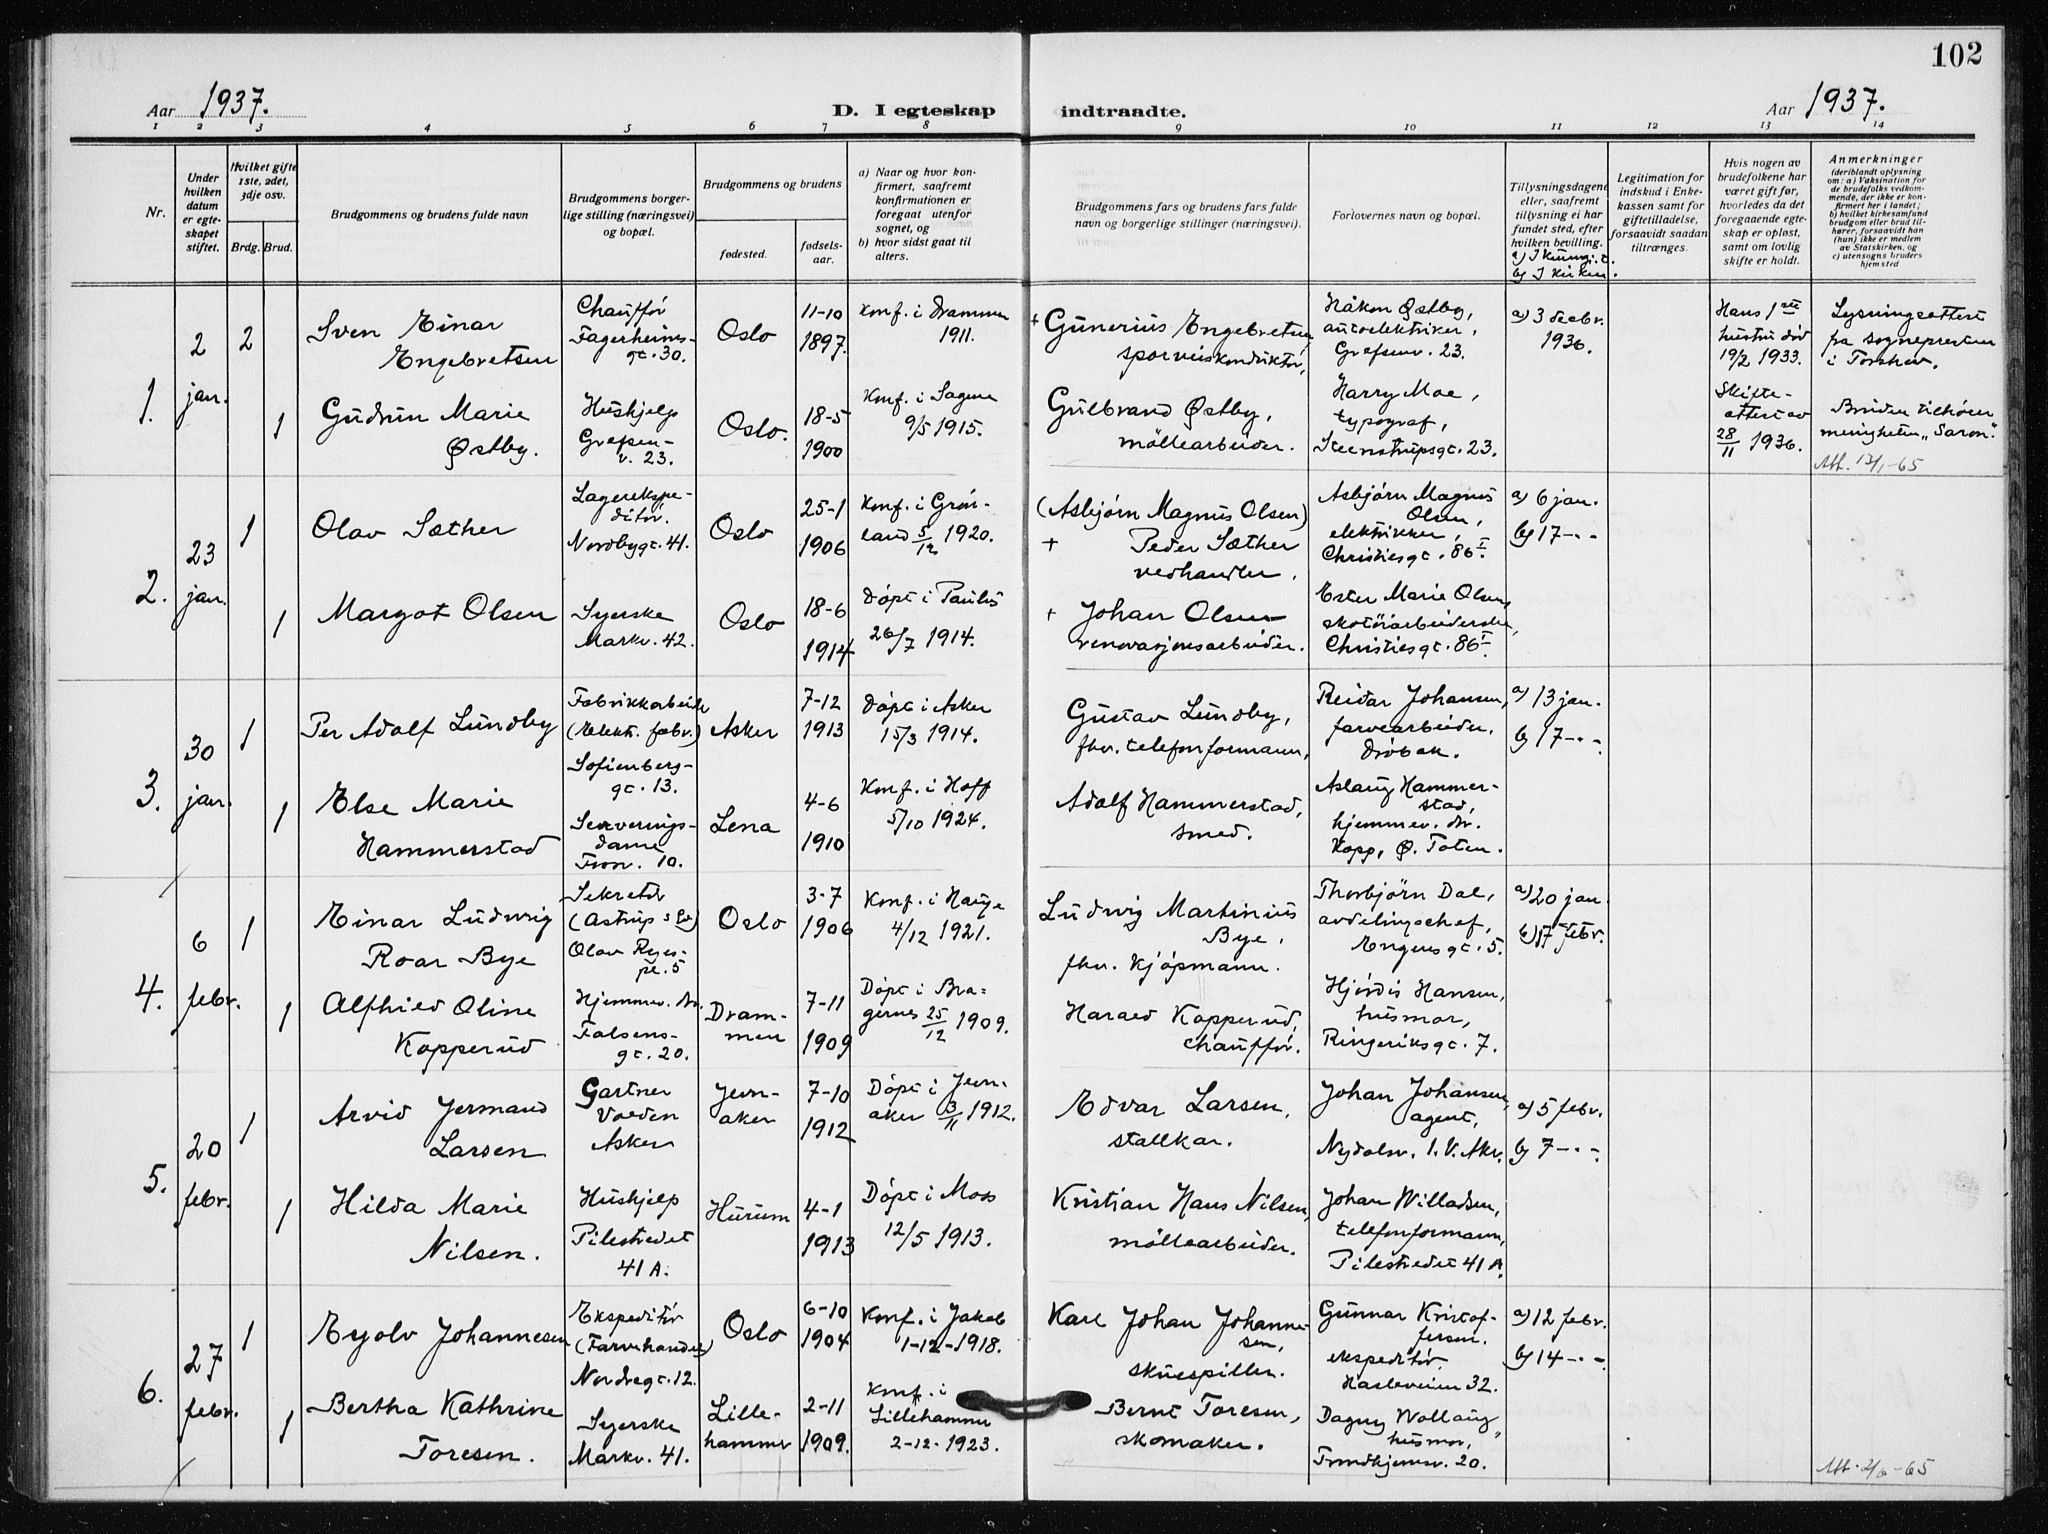 102
Aar 1937.
D. I egteskap indtraadte.
Aar 1937.
1 2 3 4 5 6 7 8 9 10 11 12 13 14
Nr.
Under hvilken datum er egteskapet stiftet.
Hvilket gifte 1ste, 2det, 3dje osv.
Brdg. Brud.
Brudgommens og brudens fulde navn
Brudgommens borgerlige stilling (næringsvei) og bopæl.
Brudgommens og brudens
fødested.
fødselsaar.
a) Naar og hvor konfirmert, saafremt konfirmationen er foregaat utenfor sognet, og
b) hvor sidst gaat til alters.
Brudgommens fars og brudens fars fulde navn og borgerlige stillinger (næringsvei).
Forlovernes navn og bopæl.
Tillysningsdagene eller, saafremt tillysning ei har fundet sted, efter hvilken bevilling.
b) I kirken.
Legitimation for indskud i Enkekassen samt for giftetilladelse, forsaavidt saadan tiltrænges.
Hvis nogen av brudefolkene har været gift før, hvorledes da det foregaaende egteskap er opløst, samt om lovlig skifte er holdt.
Anmerkninger
(deriblandt oplysning om: a) Vaksination for de brudefolks vedkommende, der ikke er konfirmert her i landet;
b) hvilket kirkesamfund brudgom eller brud tilhører, forsaavidt han (hun) ikke er medlem av Statskirken, og
c) utensogns bruders hjemsted
1.
2 jan.
2
Sven Einar
Engebretsen
Chauffør
Fagerheims-
gt. 30.
Oslo
11-10
1897.
Konf. i Drammen
1911.
+ Gunerius Engebretsen
sporveiskonduktør,
Håkon Østby,
autoelektriker,
Grefsenv. 23.
a) 3 decbr.
1936.
Hans 1ste
hustru død
19/2 1933.
Lysningsattest
fra sognepresten
i Torshov.
1
Gudrun Marie
Østby.
Hushjelp
Grefsen-
v. 23.
Oslo.
18-5
1900
Konf. i Sagene
9/5 1915.
Gulbrand Østby,
möllearbeider.
Harry Moe,
typograf,
Steenstrupsgt. 23.
Skifte-
attest av
28/11 1936.
Bruden tilhører
menigheten "Saron".
Att. 13/1-65
2.
23 jan.
1
Olav Sæther
Lagerekspe-
ditør.
Nordbygt. 41.
Oslo
25-1
1906
Konf. i Grøn-
land 5/12 1920.
(Asbjörn Magnus Olsen)
+ Peder Sæther
vedhandler.
Asbjörn Magnus
Olsen,
elektrikker,
Christiesgt. 86 I.
a) 6 jan.
b) 17 - . -
1
Margot Olsen
Syerske
Markv. 42.
Oslo
18-6
1914
Döpt i Paulus
26/7 1914.
+ Johan Olsen
renovasjonsarbeider.
Ester Marie Olsen,
skotöiarbeiderske,
Christiesgt. 86 I.
3.
30 jan.
1
Per Adolf Lundby
Fabrikkarbeider
(Elekt. fabr.)
Sofienberg-
gt. 13.
Asker
7-12
1913
Döpt i Asker
15/3 1914.
Gustav Lundby,
fhv. telefonformann,
Reidar Johansen,
farvearbeider,
Drøbak.
a) 13 jan.
b) 17 - . -
1
Else Marie
Hammerstad
Serverings-
dame
Tron. 10.
Lena
4-6
1910
Konf. i Hoff
5/10 1924.
Adolf Hammerstad,
smed.
Aslaug Hammer-
stad,
hjemmev. dtr.
Kapp, Ø. Toten.
4.
6 febr.
1
Einar Ludwig
Roar Bye
Sekretær
(Astrup & Sø)
Olav Ryes-
pl. 5
Oslo
3-7
1906
Konf. i Hauge
4/12 1921.
Ludwig Martinius
Bye,
fhv. kjøpmann.
Thorbjörn Dal,
avdelingschef,
Engens gt. 5.
a) 20 jan.
b) 7 febr.
1
Alfhild Oline
Kopperud
Hjemmev. dtr.
Falsens-
gt. 20.
Dram-
men
7-11
1909
Döpt i Bra-
gernes 25/12 1909.
Harald Kopperud,
chauffør.
Hjördis Hansen,
husmor,
Ringeriksgt. 7.
5.
20 febr.
1
Arvid Jermand
Larsen
Gartner
Volden
Asker
Jevn-
aker
7-10
1912
Döpt i Jevn-
aker 3/11 1912.
Edvar Larsen,
stallkar.
Johan Johansen,
agent,
Nydalsv. 1. V. Aker.
a) 5 febr.
b) 7 - . -
1
Hilda Marie
Nilsen.
Hushjelp
Pilestredet
41 A.
Hurum
4-1
1913
Döpt i Moss
12/5 1913.
Kristian Hans Nilsen,
möllearbeider.
Johan Willadsen,
telefonformann,
Pilestredet 41 A.
6.
27 febr.
1
Eyolv Johannesen
Ekspeditør
(Farvehandel)
Nordregt. 12.
Oslo
6-10
1904
Konf. i Jakob
1-12-1918.
Karl Johan Johanne-
sen,
skuespiller.
Gunnar Kristof-
fersen.
ekspeditør.
Hasleveien 32.
a) 12 febr.
b) 14 - . -
1
Bertha Kathrine
Toresen.
Syerske
Markv. 41.
Lille-
hammer
2-11
1909.
Konf. i
Lillehammer
2-12-1923.
Bernt Toresen,
skomaker.
Dagny Wollaug,
husmor,
Trondhjemsv. 20.
Att. 2/6-65